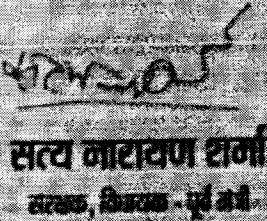 सत्य नारायण शर्मा
संरक्षक, विधायक - पूर्व मंत्री